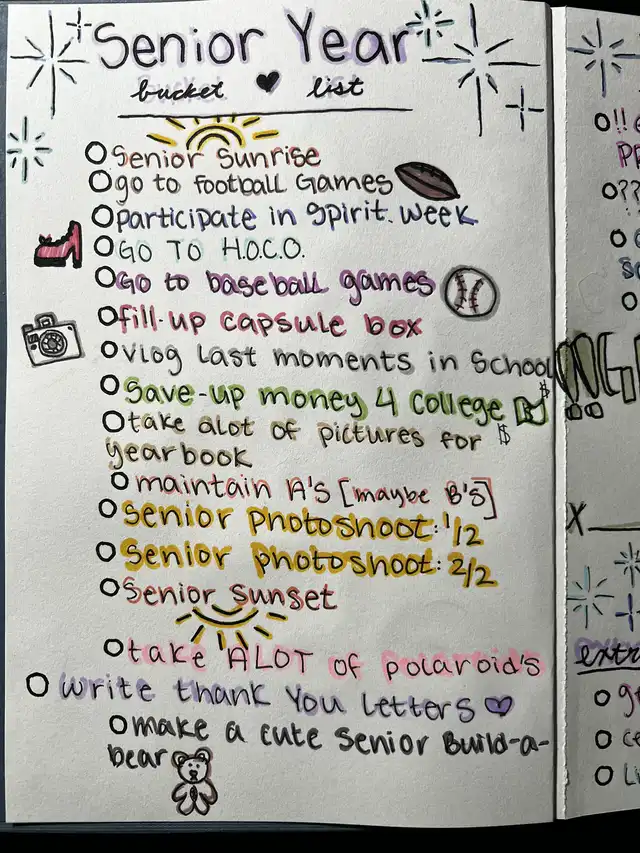 Senior Year
bucket list
Senior Sunrise
go to football Games
participate in spirit. week
GO TO H.O.C.O.
Go to baseball games
fill-up capsule box
vlog last moments in School
Save-up money 4 college
take alot of pictures for
yearbook
maintain A's [maybe B's]
senior photoshoot: 1/2
senior photoshoot: 2/2
Senior Sunset
take ALOT of polaroid's
write thank you letters
make a cute senior Build-a-
bear
!!
??
X
extr